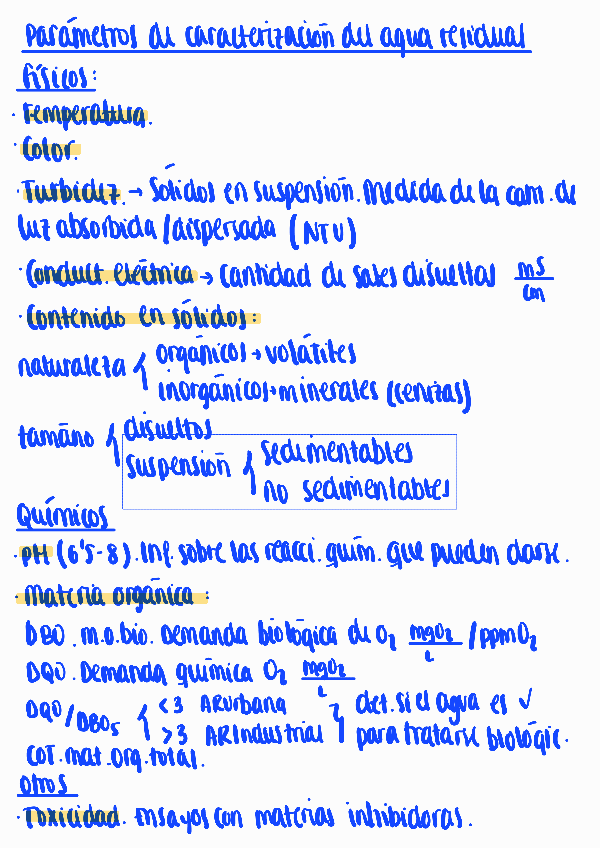 Parámetros de caracterización del agua residual
Físicos:
· Temperatura.
· Color.
· Turbidez → Sólidos en suspensión. Medida de la cant. de
luz absorbida / dispersada (NTU)
· Conduct. eléctrica → cantidad de sales disueltas mS/cm
· Contenido en sólidos:
naturaleza { orgánicos → volátiles
inorgánicos → minerales (cenizas)
tamaño { disueltos
suspensión { sedimentables
no sedimentables
Químicos
· pH (6'5-8). Inf. sobre las reacci. quím. que pueden darse.
· Materia orgánica:
DBO. m.o.bio. Demanda biológica de O₂ mgO₂/L / ppmO₂
DQO. Demanda química O₂ mgO₂/L
DQO/DBO₅ { <3 ARurbana } det. si el agua es ✓
>3 ARIndustrial para tratarse biológic.
COT. mat. org. total.
Otros
· Toxicidad. Ensayos con materias inhibidoras.